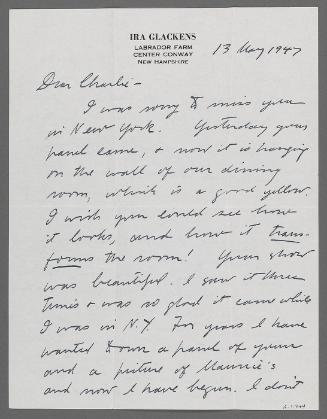 IRA GLACKENS
LABRADOR FARM
CENTER CONWAY
NEW HAMPSHIRE
13 May 1947
Dear Charlie -
I was sorry to miss you
in New York. Yesterday your
panel came, & now it is hanging
on the wall of our dining
room, which is a good yellow.
I wish you could see how
it looks, and how it trans-
forms the room! Your show
was beautiful. I saw it three
times & was so glad it came while
I was in N.Y. For years I have
wanted to own a panel of yours
and a picture of Maurice's
and now I have begun. I don't